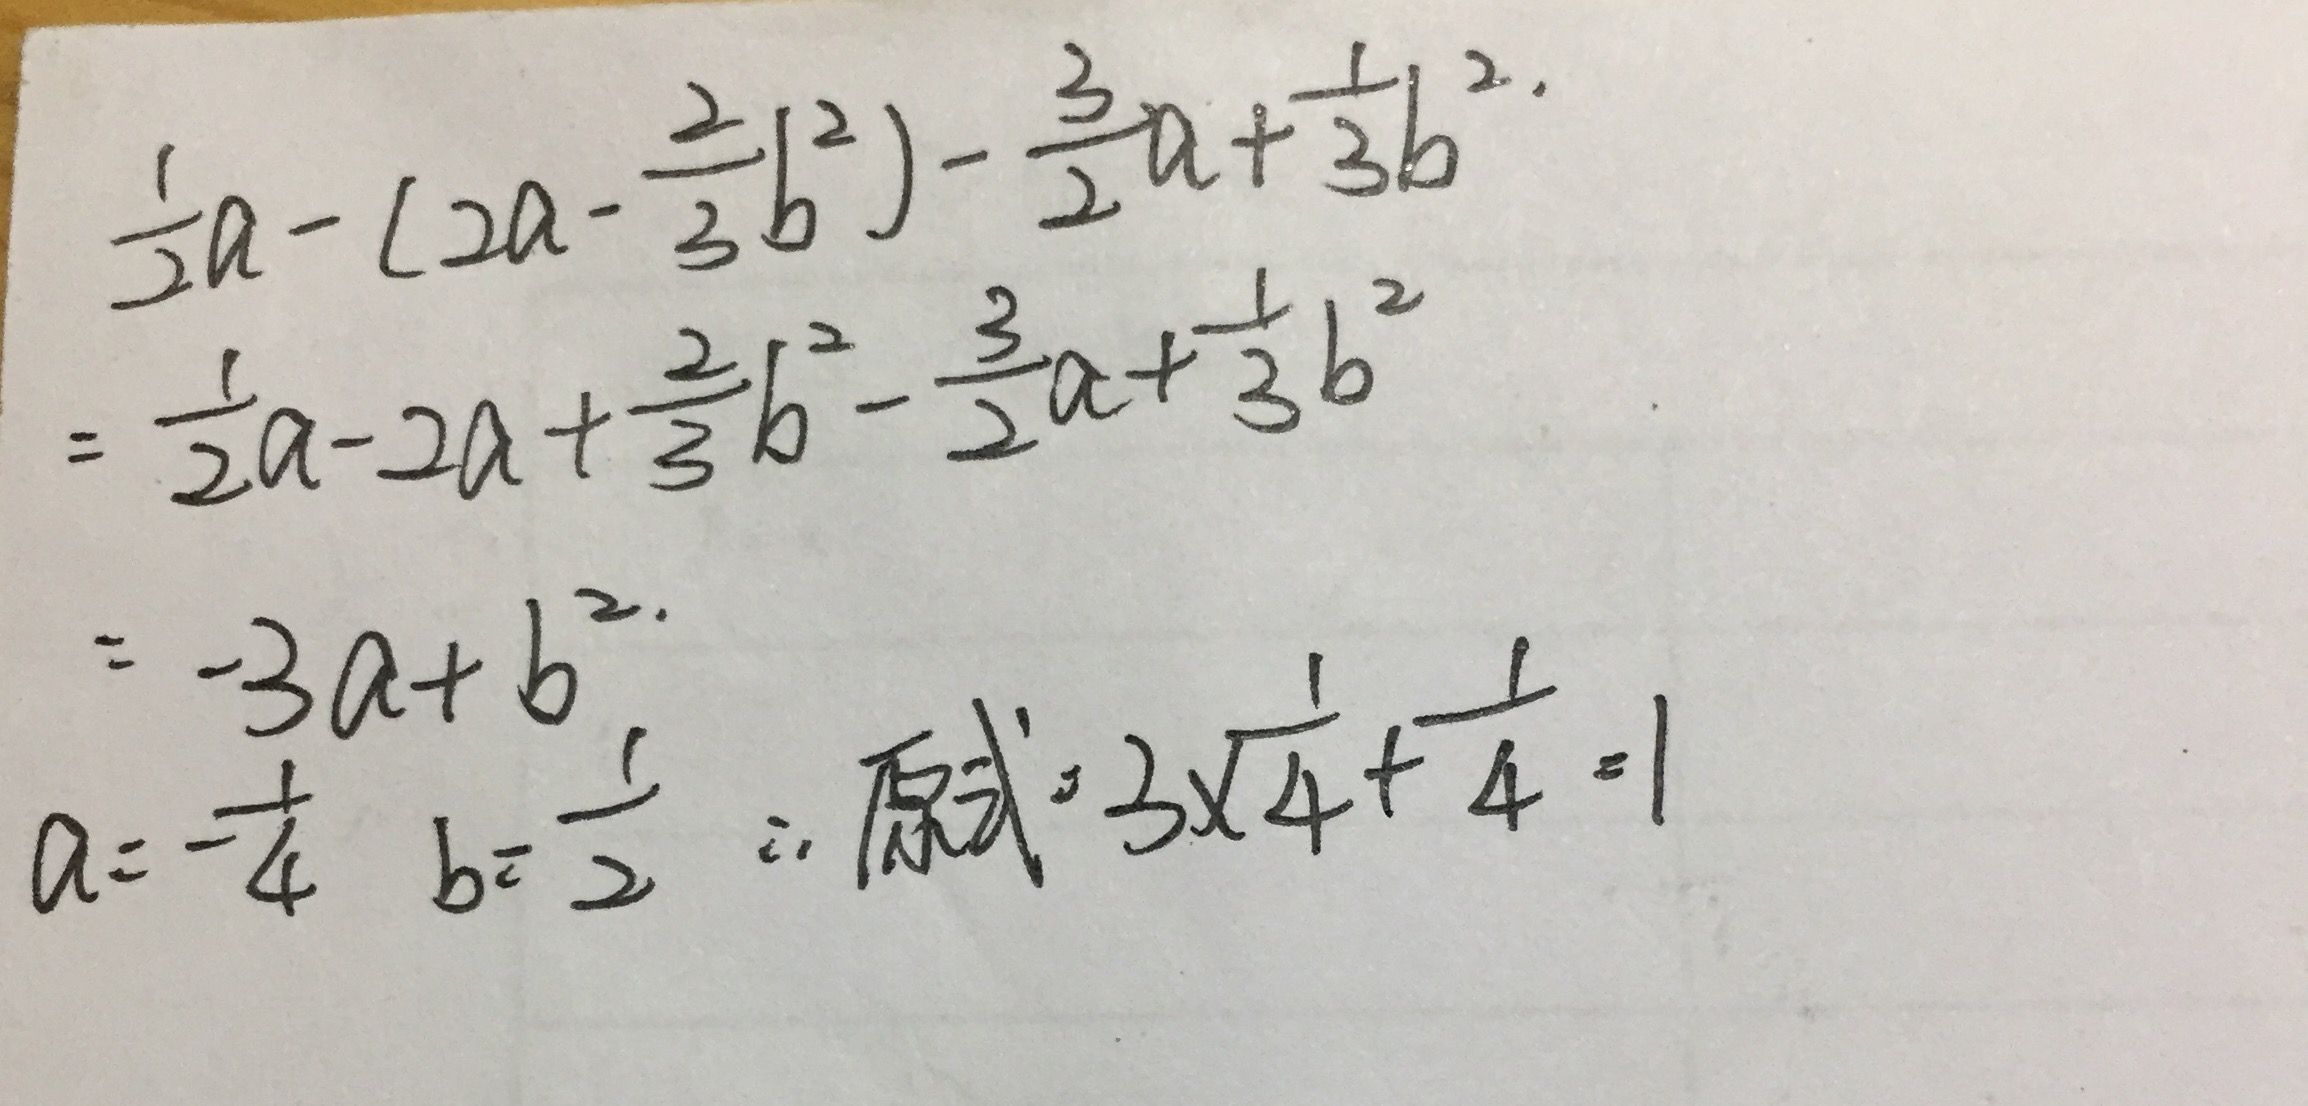 ½a-(2a-⅔b²)-3/2a+⅓b².
=½a-2a+⅔b²-3/2a+⅓b²
=-3a+b².
a=-¼ b=½ ∴原式=3×¼+¼=1